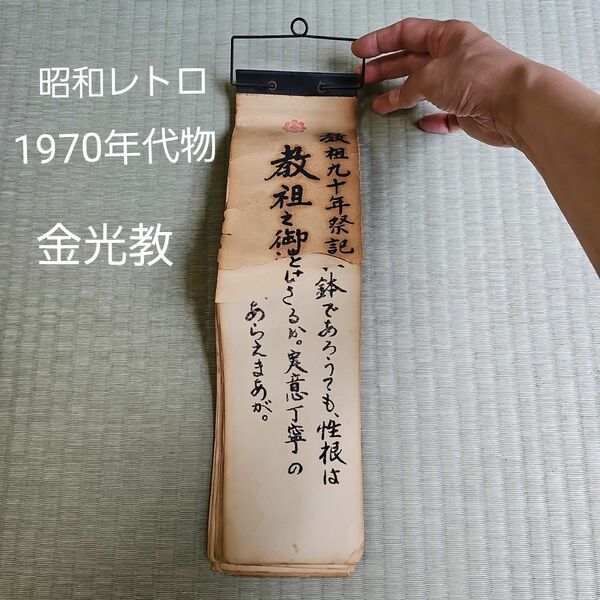 昭和レトロ
1970年代物
金光教
教祖九十年祭記
教祖之御
鉢であろうても、性根は
さるが。実意丁寧の
あらえまあが。